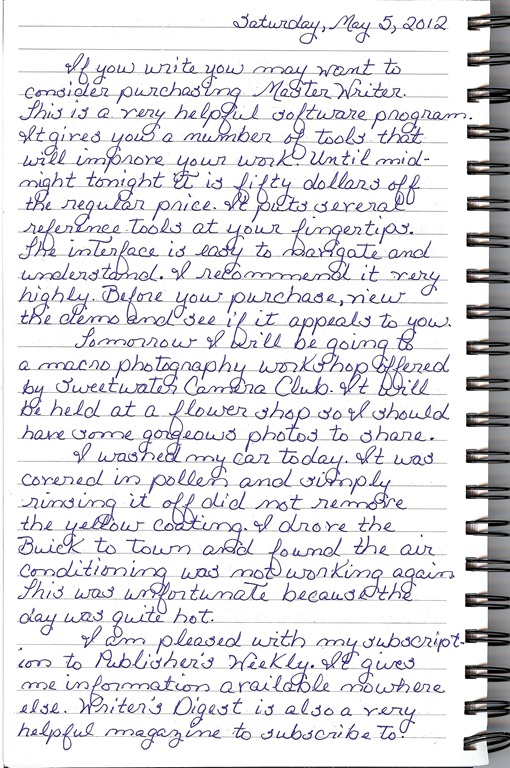 Saturday, May 5, 2012
If you write you may want to
consider purchasing Master Writer.
This is a very helpful software program.
It gives you a number of tools that
will improve your work. Until mid-
night tonight it is fifty dollars off
the regular price. It puts several
reference tools at your fingertips.
The interface is easy to navigate and
understand. I recommend it very
highly. Before your purchase, view
the demo and see if it appeals to you.
Tomorrow I will be going to
a macro photography workshop offered
by Sweetwater Camera Club. It will
be held at a flower shop so I should
have some gorgeous photos to share.
I washed my car today. It was
covered in pollen and simply
rinsing it off did not remove
the yellow coating. I drove the
Buick to town and found the air
conditioning was not working again.
This was unfortunate because the
day was quite hot.
I am pleased with my subscript-
ion to Publisher's Weekly. It gives
me information available nowhere
else. Writer's Digest is also a very
helpful magazine to subscribe to.